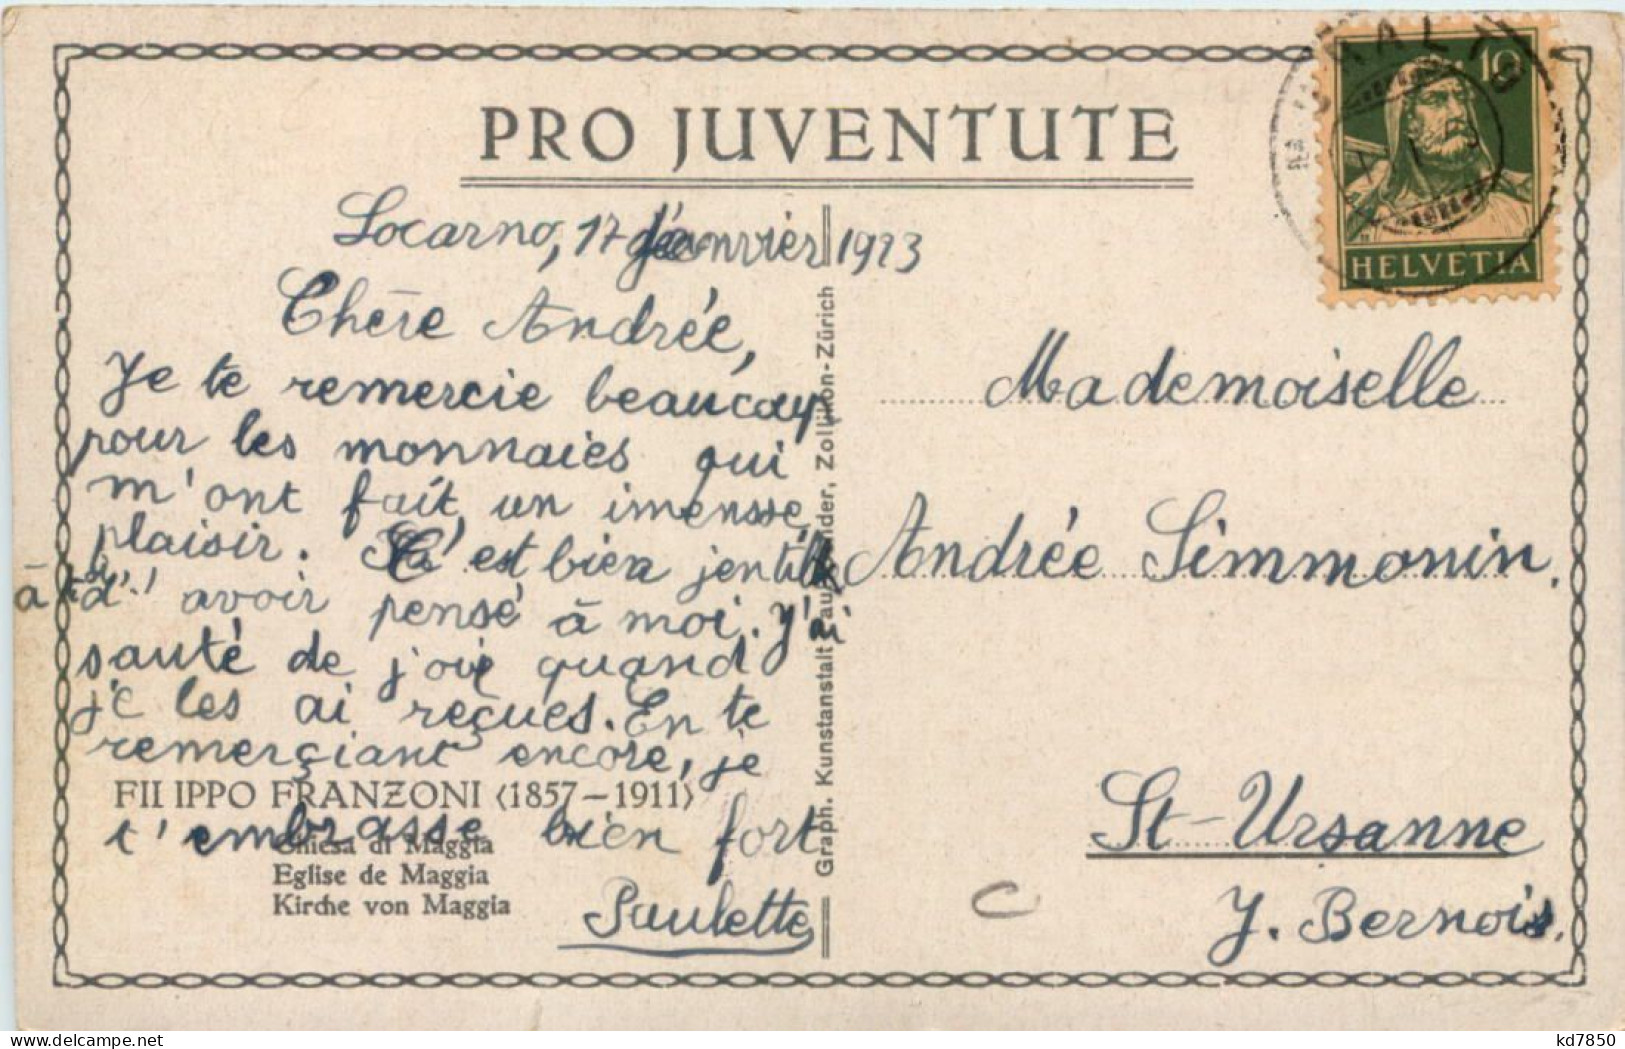 PRO JUVENTUTE
Locarno, 17 janvier 1923
Chère Andrée,
Je te remercie beaucoup
pour les monnaies qui
m'ont fait un imensse
plaisir. C'est bien jentille
à toi d'avoir pensé à moi. J'ai
sauté de joie quand
je les ai reçues. En te
remerçiant encore, je
FILIPPO FRANZONI (1857–1911)
t'embrasse bien fort
Chiesa di Maggia
Eglise de Maggia
Kirche von Maggia
Paulette
Graph. Kunstanstalt Zollikon-Zürich
10
HELVETIA
Mademoiselle
Andrée Simmonin.
St-Ursanne
J. Bernois.
C
kd7850